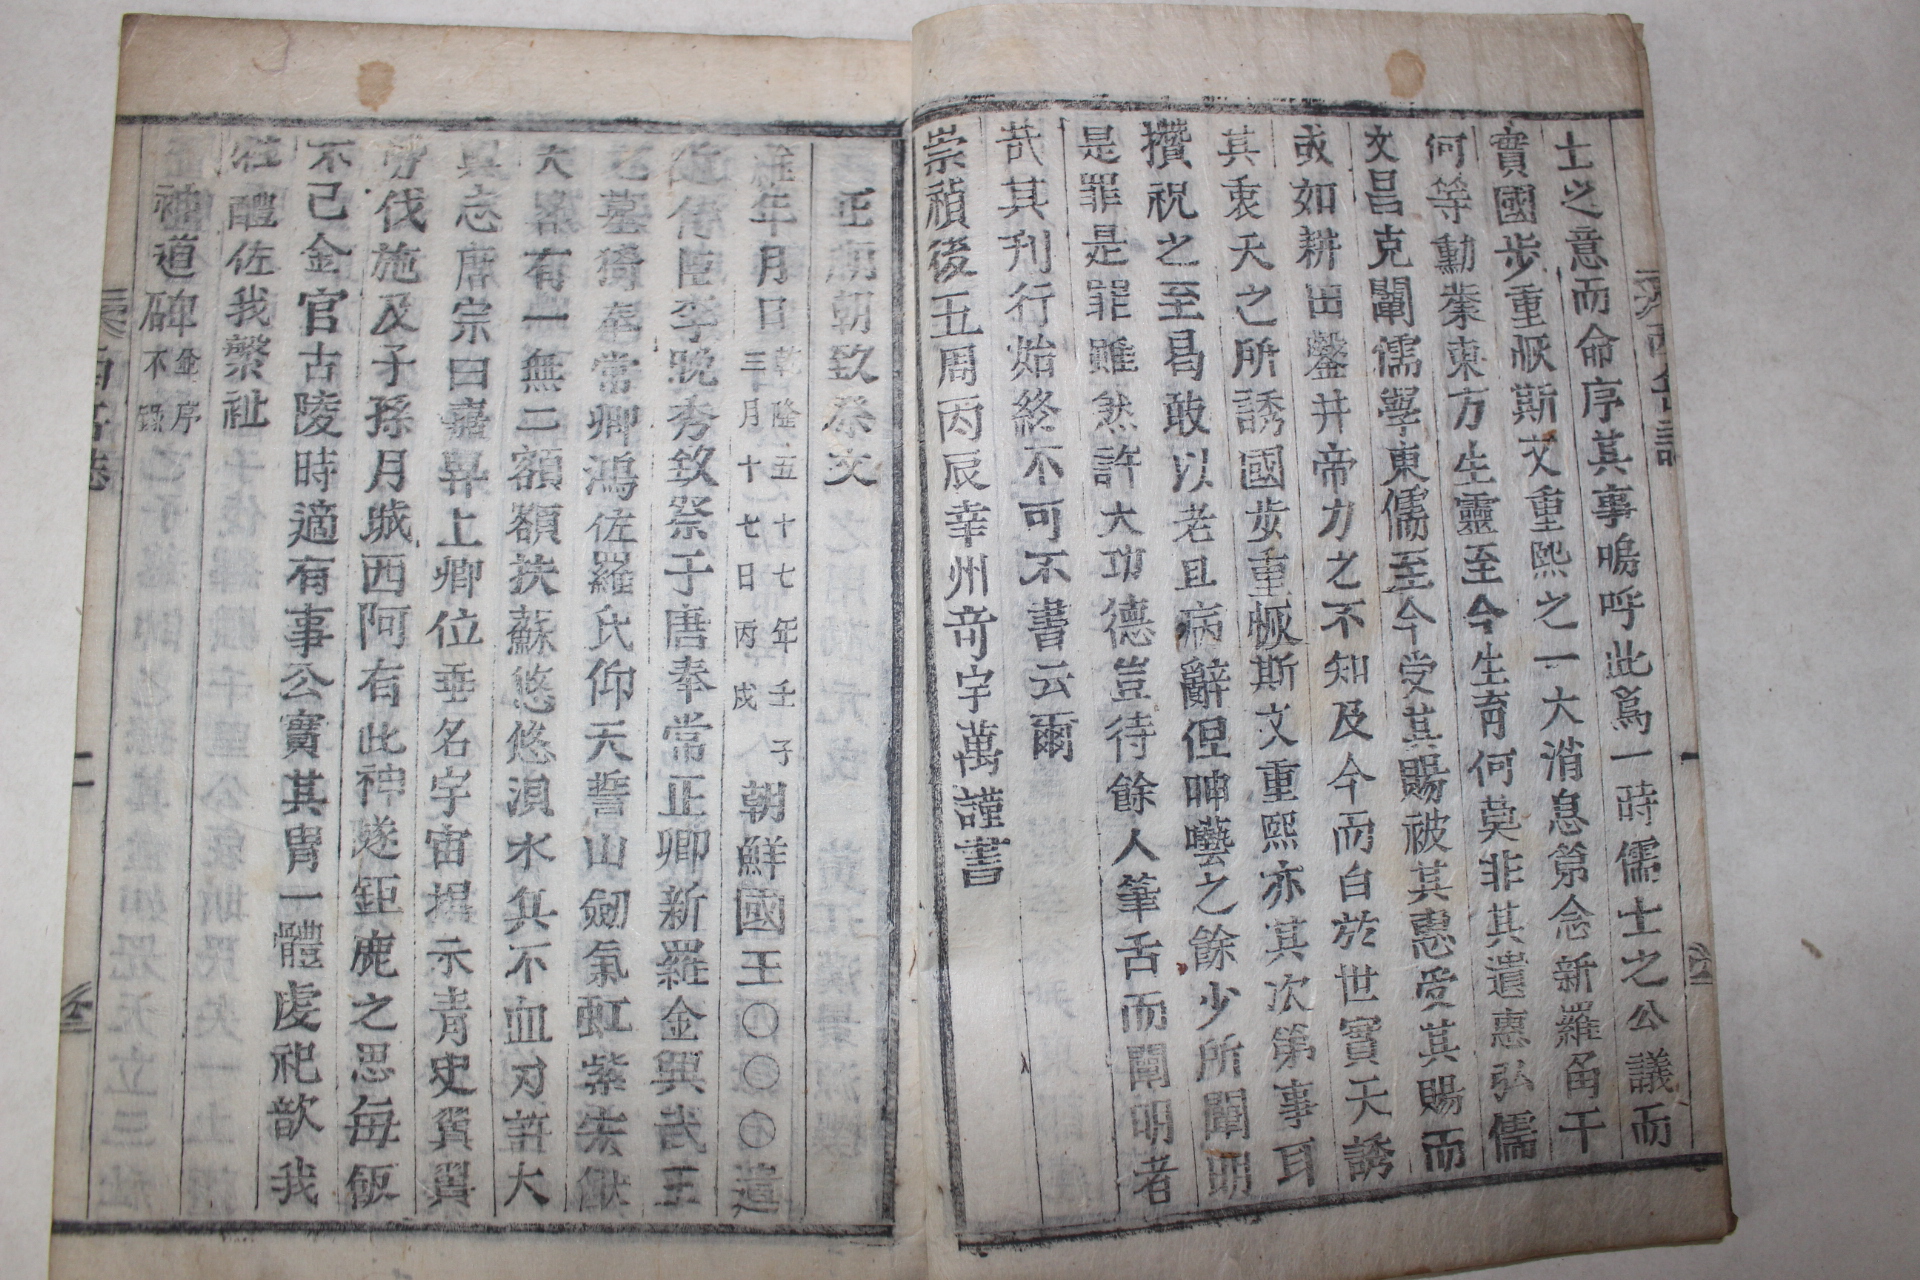 士之意而命序其事嗚呼此爲一時儒士之公議而
實國步重恢斯文重熙之一大消息第念新羅角干
何等勳業東方生靈至今生育何莫非其遺惠弘儒
文昌克闡儒學東儒至今受其賜被其惠受其賜而
或如耕田鑿井帝力之不知及今而白於世實天誘
其衷天之所誘國步重恢斯文重熙亦其次第事耳
攢祝之至曷敢以老且病辭但呻囈之餘少所闡明
是罪是罪雖然許大功德豈待餘人筆舌而闡明者
哉其刊行始終不可不書云爾
崇禎後五周丙辰幸州奇宇萬謹書
正廟朝致祭文
維年月日乾隆五十七年壬子三月十七日丙戌朝鮮國王〇〇〇遣
近侍臣李晩秀致祭于唐奉常正卿新羅金興武王
之墓猗奉常卿鴻佐羅氏仰天誓山劒氣虹紫
大畧有一無二額額扶蘇悠悠浿水兵不血刃
與志唐宗曰嘉畀上卿位垂名字宙揭示青史翼翼
伐施及子孫月城西阿有此神隧鉅鹿之思每飯
不已金官古陵時適有事公實其胄一體虔祀歆我
牲醴佐我繁祉
神道碑并序不錄